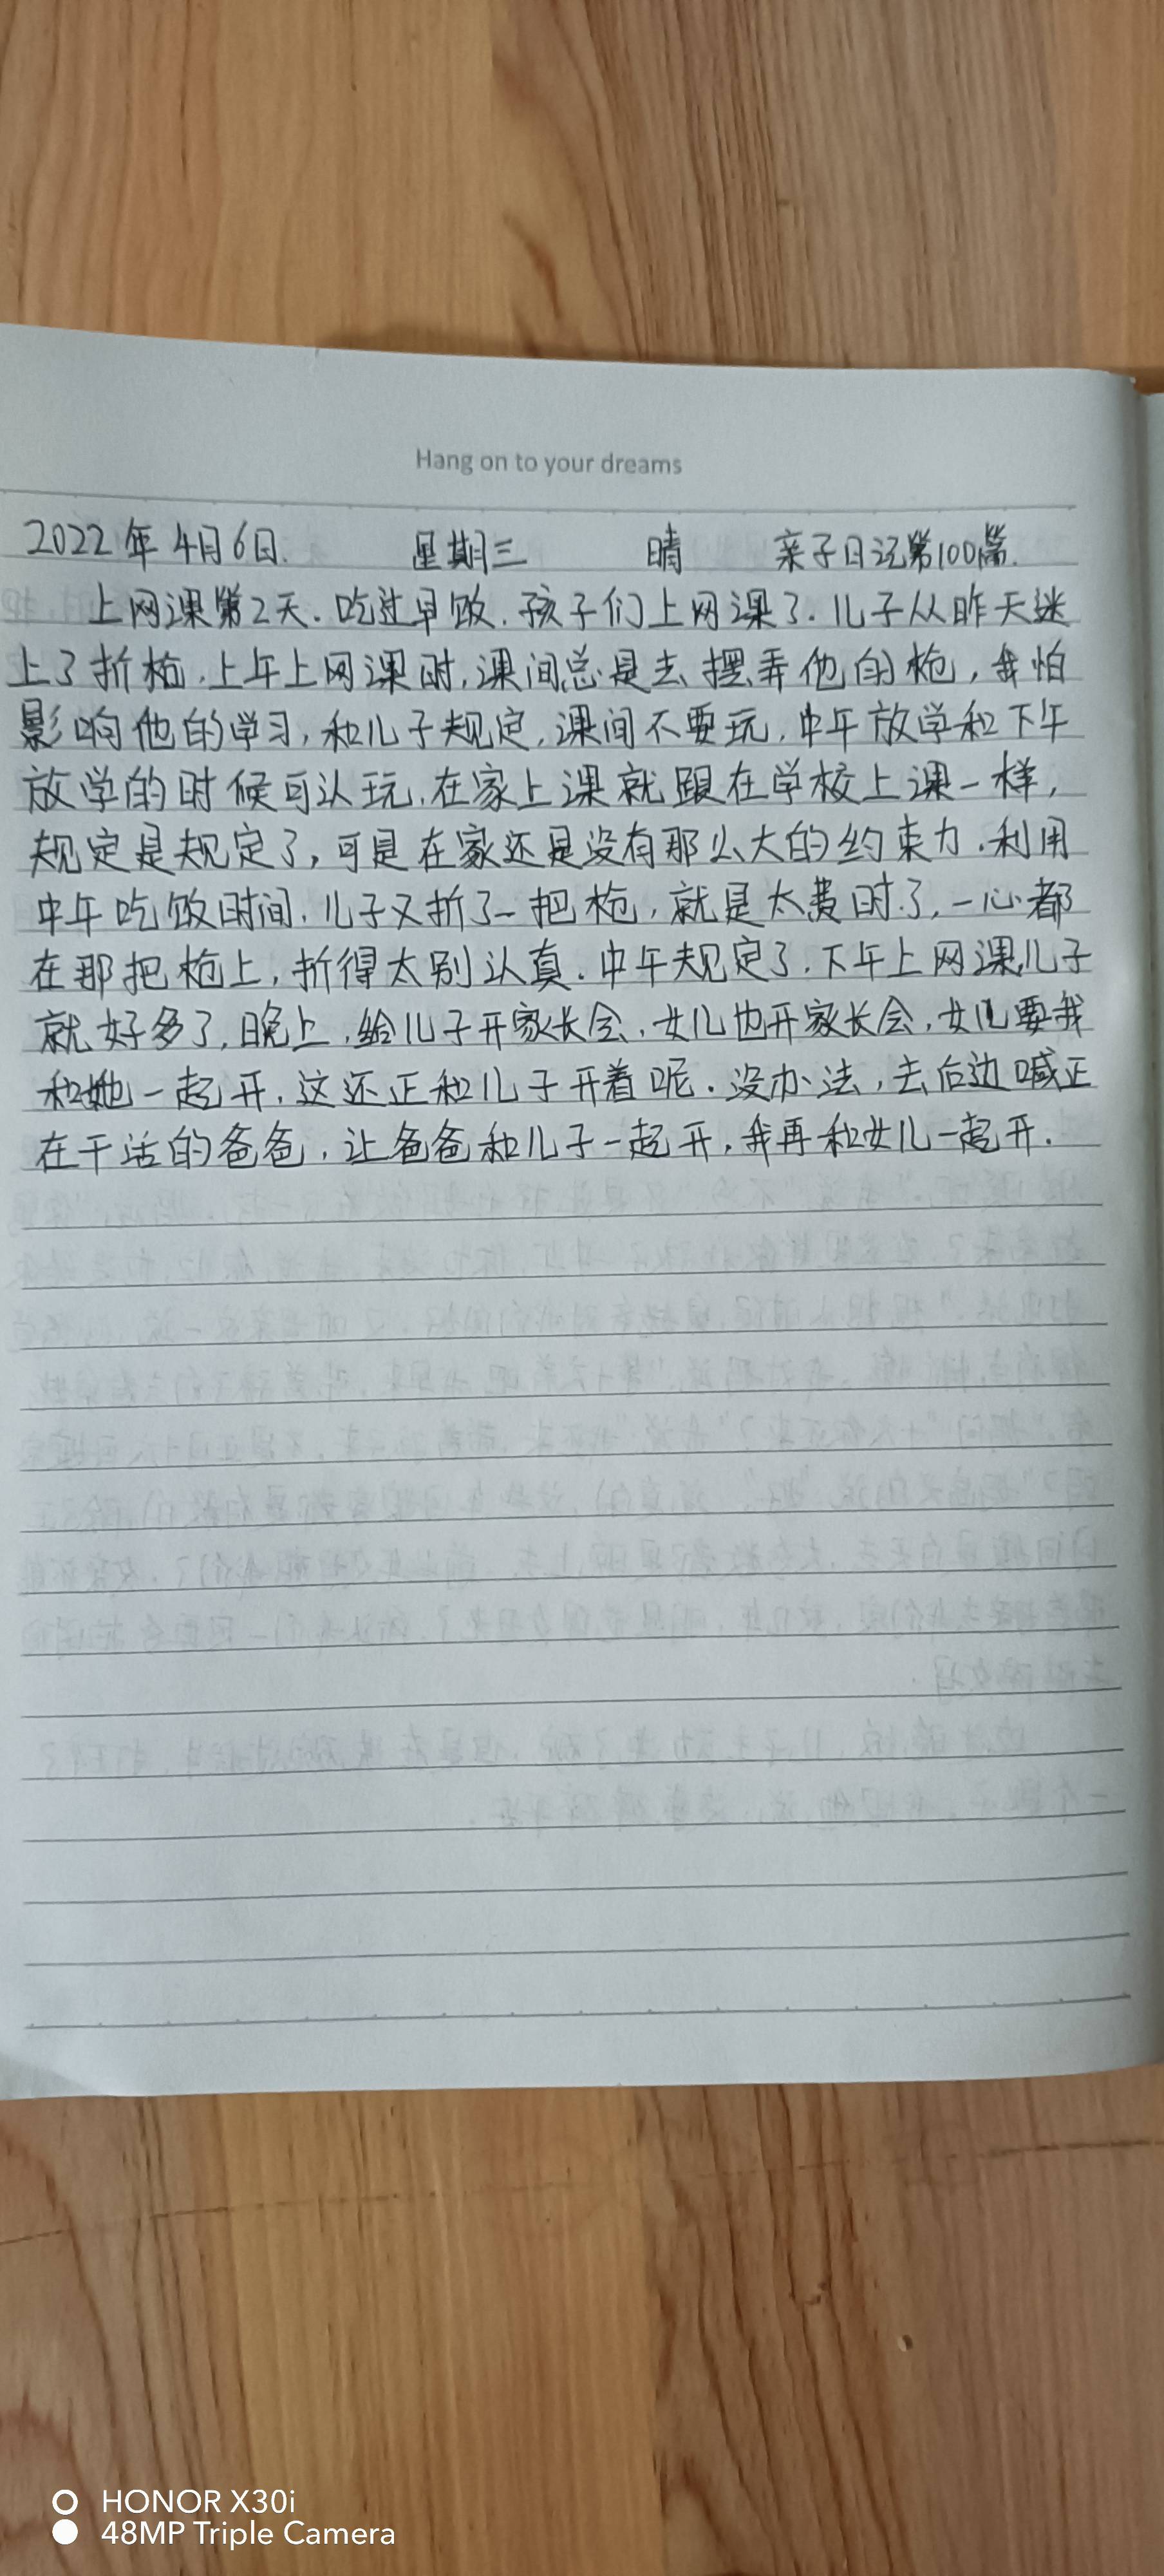 Hang on to your dreams
2022年4月6日. 星期三 晴 亲子日记第100篇.
上网课第2天.吃过早饭.孩子们上网课了.儿子从昨天迷
上了折枪.上午上网课时,课间总是去摆弄他的枪,我怕
影响他的学习,和儿子规定,课间不要玩,中午放学和下午
放学的时候可以玩,在家上课就跟在学校上课一样,
规定是规定了,可是在家还是没有那么大的约束力.利用
中午吃饭时间,儿子又折了一把枪,就是太费时了,一心都
在那把枪上,折得太别认真.中午规定了,下午上网课,儿子
就好多了,晚上,给儿子开家长会,女儿也开家长会,女儿要我
和她一起开,这还正和儿子开着呢.没办法,去后边喊正
在干活的爸爸,让爸爸和儿子一起开,我再和女儿一起开.
HONOR X30i
48MP Triple Camera